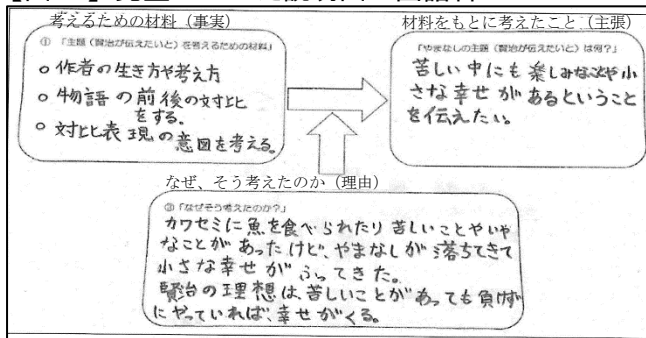 考えるための材料（事実）
①「主題（賢治が伝えたいと）を考えるための材料」
○作者の生き方や考え方
○物語の前後の対比
をする。
○対比表現の意図を考える。
材料をもとに考えたこと（主張）
「やまなしの主題（賢治が伝えたいと）は何？」
苦しい中にも楽しみなことや小
さな幸せがあるということ
を伝えたい。
なぜ、そう考えたのか（理由）
③「なぜそう考えたのか？」
カワセミに魚を食べられたり苦しいことやいや
なことがあったけど、やまなしが落ちてきて
小さな幸せがふってきた。
賢治の理想は、苦しいことがあっても負けず
にやっていれば、幸せがくる。